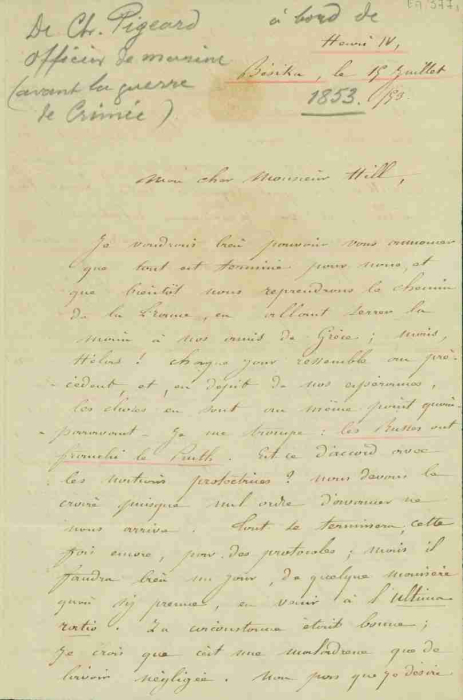 De Ch. Pigeard
officier de marine
(avant la guerre
de Crimée)
à bord de
Henri IV,
Bésika, le 15 Juillet
1853. /53
Mon cher Monsieur Hill,
Je voudrais bien pouvoir vous annoncer
que tout est terminé pour nous, et
que bientôt nous reprendrons le chemin
de la France, en allant serrer la
main à nos amis de Grèce ; mais,
Hélas ! chaque jour ressemble au pré-
cédent, et, en dépit de nos espérances,
les choses en sont au même point qu'au-
paravant - Je me trompe : les Russes ont
franchi le Pruth. Est ce d'accord avec
les nations protectrices ? nous devons le
croire puisque nul ordre d'avancer ne
nous arrive. Tout se terminera, cette
fois encore, par des protocoles ; mais il
faudra bien un jour, de quelque manière
qu'on s'y prenne, en venir à l'ultima
ratio. La circonstance était bonne ;
Je crois que c'est une maladresse que de
l'avoir négligée. Non pas que je désire